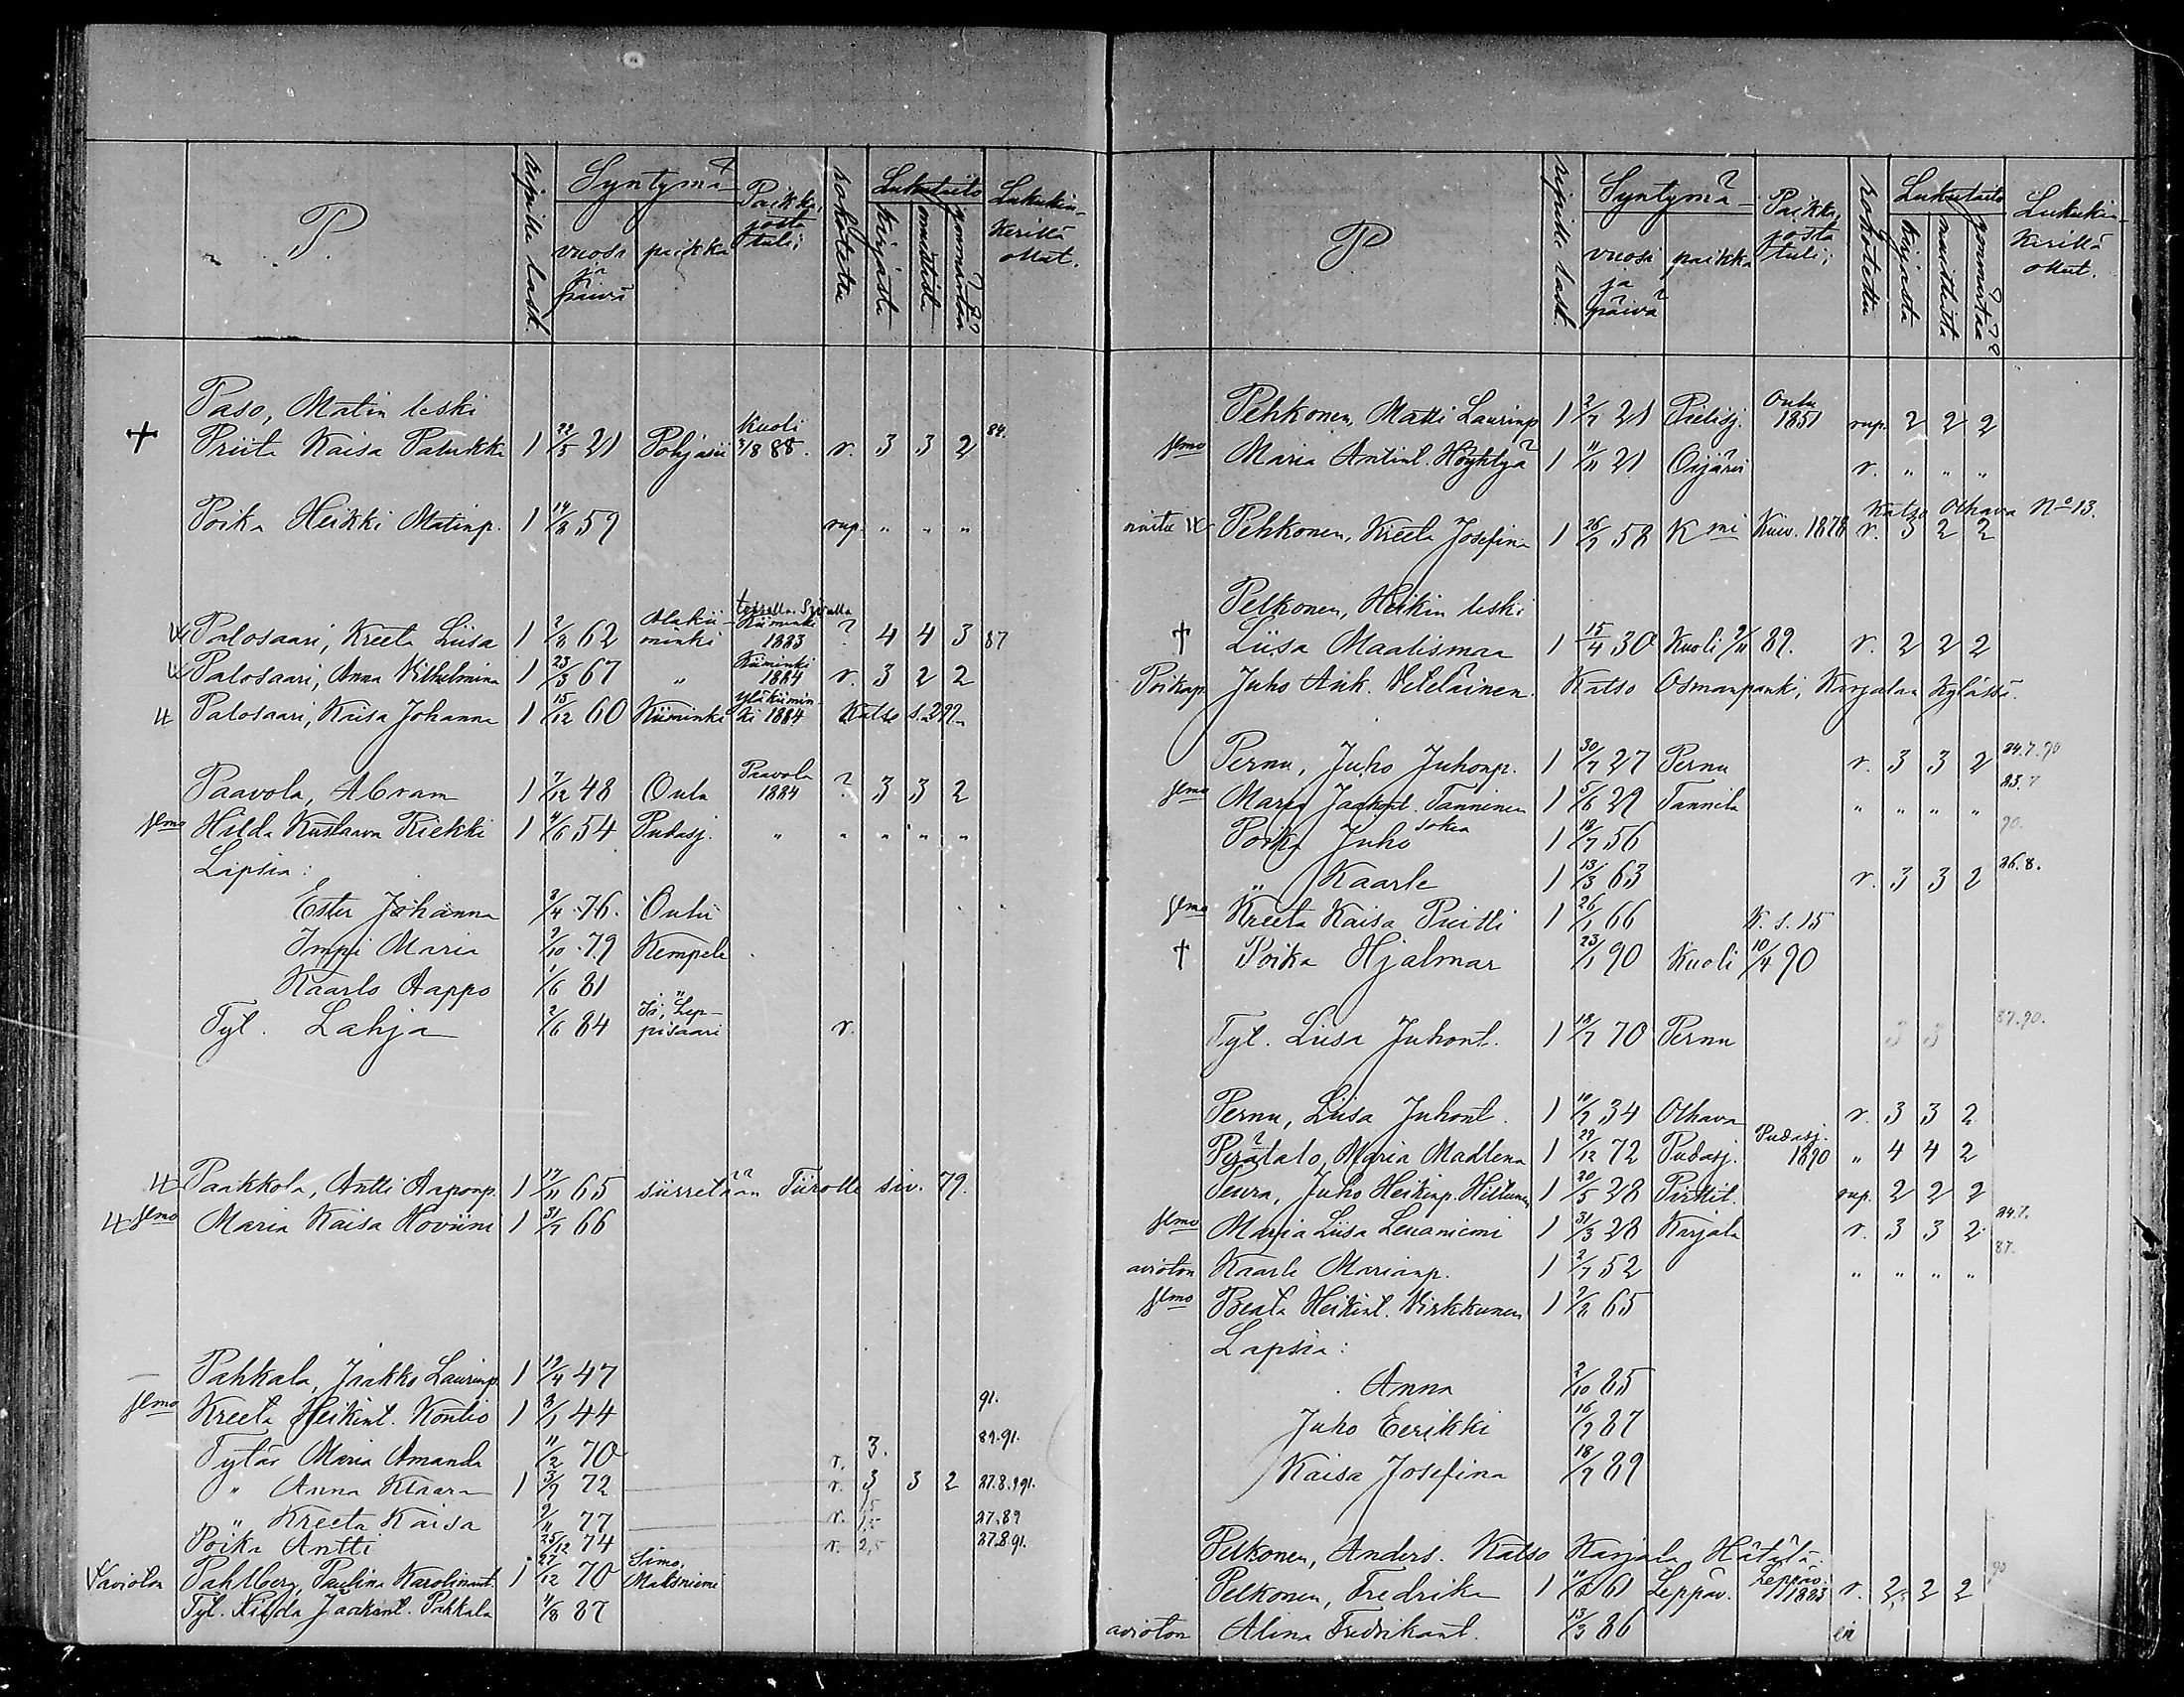 P.
ripille lask.
Syntymä-
vuosi ja päivä
paikka
Paikka, josta tuli;
rokotettu
Lukutaito
kirjasta
muistista
ymmärtää
Lukukinkerillä ollut.
Paso, Matin leski
† Priita Kaisa Patukka 1 22/5 21 Pohjasii Kuoli 3/8 88. r. 3 3 2 84.
Poika Heikki Matinp. 1 14/8 59 rup. " " "
Palosaari, Kreeta Liisa 1 2/8 62 Alakiiminki Kiiminki 1883 ? 4 4 3 87
Palosaari, Anna Vilhelmina 1 23/3 67 " Kiiminki 1884 r. 3 2 2
Palosaari, Kaisa Johanna 1 15/12 60 Kiiminki Yläkiiminki 1884 Katso s. 299.
Paavola, Abram 1 7/12 48 Oulu Paavola 1884 ? 3 3 2
Hilda Kustaava Riekki 1 4/6 54 Pudasj. " " " " "
Lapsia:
Ester Johanna 3/4 76. Oulu
Impi Maria 2/10 79 Kempele
Kaarlo Aappo 1/6 81 "
Tyt. Lahja 2/6 84 Ii, Leppisaari r.
Paakkola, Antti Aaponp. 1 17/11 65 siirretään Tiirolle siv. 79.
Maria Kaisa Hoviini 1 31/7 66
Pahkala, Jaakko Laurinp. 1 19/4 47
Kreeta Heikint. Kontio 1 8/1 44 91.
Tytär Maria Amanda 11/2 70 r. 3. 89.91.
" Anna Klaara 1 3/9 72 r. 3 3 2 87.8.9.91.
" Kreeta Kaisa 2/11 77 r. 1,5 87.89
Poika Antti 25/12 74 r. 2,5 87.8.91.
avioton Pahlberg, Paulina Karolinant. 1 27/12 70 Simo, Maksniemi
Tyt. Hilda Jaakint. Pahkala 4/8 87
P
ripille lask.
Syntymä-
vuosi ja päivä
paikka
Paikka, josta tuli;
rokotettu
Lukutaito
kirjasta
muistista
ymmärtää
Lukukinkerillä ollut.
Pehkonen, Matti Laurinp. 1 2/7 21 Pielisj. Oulu 1851 rup. 2 2 2
Maria Antint. Höyhtyä 1 11/11 21 Oijärvi r. " " "
Katso Olhava No 13.
Pehkonen, Kreeta Josefina 1 26/7 58 Kmi Kuiv. 1878 r. 3 2 2
Pelkonen, Heikin leski
† Liisa Maalismaa 1 15/4 30 Kuoli 9/11 89. r. 2 2 2
Poikap. Juho Ant. Veteläinen. Katso Osmanpanki, Karjalan Kylässä.
Pernu, Juho Juhonp. 1 30/7 27 Pernu r. 3 3 2 84.7.90
Maria Jaakont. Tanninen 1 5/6 29 Tannila " " " " 83.7
Poika Juho sokea 1 18/7 56 90.
" Kaarle 1 13/3 63 r. 3 3 2 86.8.
Kreeta Kaisa Puitti 1 26/1 66 K. s. 15
† Poika Hjalmar 23/1 90 Kuoli 10/4 90
Tyt. Liisa Juhont. 1 18/7 70 Pernu 3 3 87.90.
Pernu, Liisa Juhont. 1 10/7 34 Olhava r. 3 3 2
Perätalo, Maria Madlena 1 29/12 72 Pudasj. Pudasj. 1890 " 4 4 2
Peura, Juho Heikinp. Hiltunen 1 20/5 28 Pirttit. rup. 2 2 2
Maria Liisa Leuaniemi 1 31/3 28 Karjala r. 3 3 2 84.7.
avioton Kaarle Marianp. 1 2/7 52 " " " " 87.
Beata Heikint. Virkkunen 1 2/8 65
Lapsia:
Anna 2/10 85
Juho Eerikki 16/7 87
Kaisa Josefina 18/7 89
Pelkonen, Anders. Katso Karjala, Hätälä.
Pelkonen, Fredrika 1 11/6 61 Leppäv. Leppäv. 1883 r. 2 2 2 90
avioton Alina Fredrikant. 13/3 86 ei